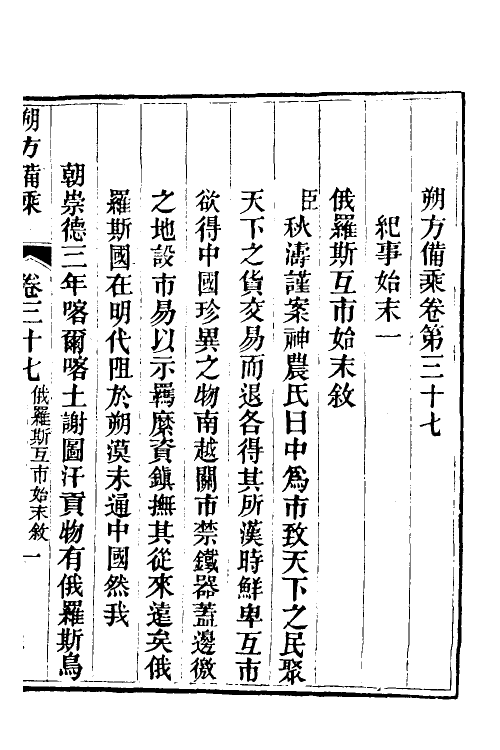 朔方備乘卷第三十七
紀事始末一
俄羅斯互市始末敘
臣秋濤謹案神農氏日中為市致天下之民聚
天下之貨交易而退各得其所漢時鮮卑互市
欲得中國珍異之物南越關市禁鐵器蓋邊徼
之地設市易以示羈縻資鎮撫其從來遠矣俄
羅斯國在明代阻於朔漠未通中國然我
朝崇德三年喀爾喀土謝圖汗貢物有俄羅斯鳥
朔方備乘 卷三十七 俄羅斯互市始末敘 一